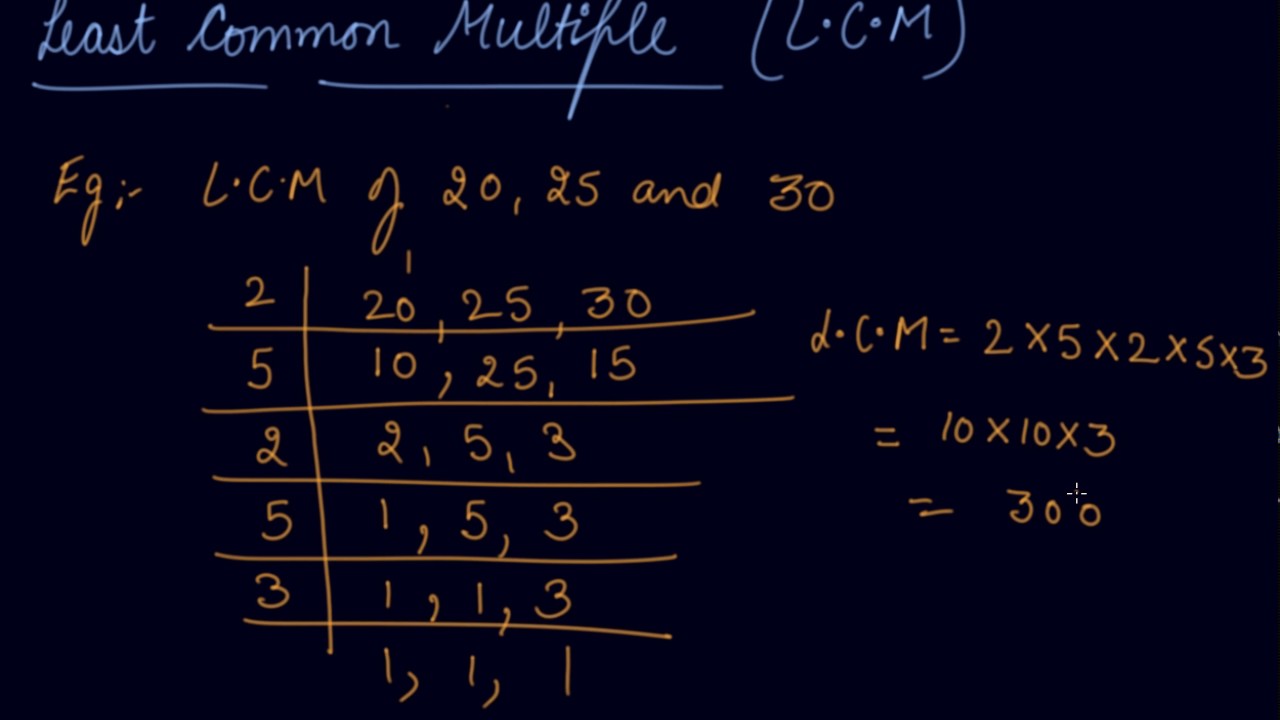 Least Common Multiple (L.C.M)
Eg:- L.C.M of 20, 25 and 30
2 | 20, 25, 30
5 | 10, 25, 15
2 | 2, 5, 3
5 | 1, 5, 3
3 | 1, 1, 3
1, 1, 1
L.C.M = 2×5×2×5×3
= 10×10×3
= 300